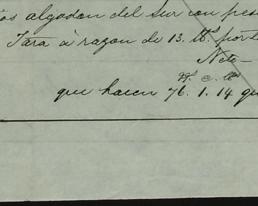 os algodon del Sur con pes
Tara á razon de 13. lbs por
Neto —
qs @ lbs
que hacen 76. 1. 14 q